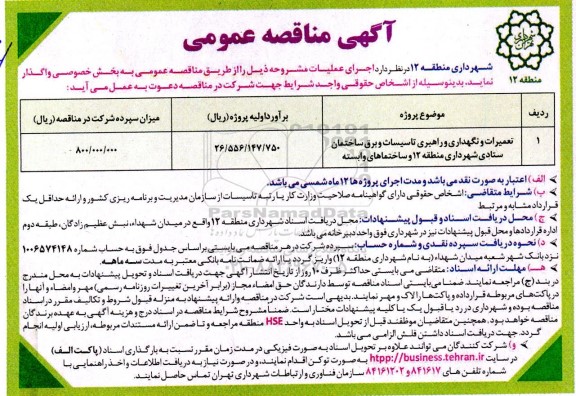 آگهی مناقصه عمومی
تهران
منطقه ۱۲
شهرداری منطقه ۱۲ در نظر دارد اجرای عملیات مشروحه ذیل را از طریق مناقصه عمومی به بخش خصوصی واگذار
نماید. بدینوسیله از اشخاص حقوقی واجد شرایط جهت شرکت در مناقصه دعوت به عمل می آید:
ردیف موضوع پروژه برآورد اولیه پروژه (ریال) میزان سپرده شرکت در مناقصه (ریال)
۱ تعمیرات و نگهداری و راهبری تاسیسات و برق ساختمان ۲۶/۵۵۶/۱۴۷/۷۵۰ ۸۰۰/۰۰۰/۰۰۰
ستادی شهرداری منطقه ۱۲ و ساختماهای وابسته
الف) اعتبار به صورت نقد می باشد و مدت اجرای پروژه ها ۱۲ ماه شمسی می باشد.
ب) شرایط متقاضی: اشخاص حقوقی دارای گواهینامه صلاحیت وزارت کار یا رتبه تاسیسات از سازمان مدیریت و برنامه ریزی کشور و ارائه حداقل یک
قرارداد مشابه و مرتبط
ج) محل دریافت اسناد و قبول پیشنهادات: محل دریافت اسناد شهرداری منطقه ۱۲ واقع در میدان شهداء، نبش عظیم زادگان، طبقه دوم
اداره قراردادها و محل قبول پیشنهادات نیز در شهرداری فوق واحد دبیرخانه می باشد.
د) نحوه دریافت سپرده نقدی و شماره حساب: سپرده شرکت در هر مناقصه می بایستی براساس جدول فوق به حساب شماره ۱۰۰۶۵۷۴۱۴۸
نزد بانک شهر شعبه میدان شهداء (به نام شهرداری منطقه ۱۲) واریز گردد یا ارائه ضمانت نامه بانکی معتبر به مدت سه ماهه.
هـ) مهلت ارائه اسناد: متقاضی می بایستی حداکثر ظرف ۱۰ روز از تاریخ انتشار آگهی جهت دریافت اسناد و تحویل پیشنهادات به محل مندرج
در بند (ج) مراجعه نمایند. ضمنا می بایستی اسناد مناقصه توسط دارندگان حق امضاء مجاز (برابر آخرین تغییرات روزنامه رسمی) مهر و امضاء و آنها را
در پاکت های مربوطه قرار داده و پاکت ها را لاک و مهر نمایند. بدیهی است شرکت در مناقصه و ارائه پیشنهاد به منزله قبول شروط و تکالیف مقرر در اسناد
مناقصه بوده و شهرداری در رد یا قبول یک یا کلیه پیشنهادات مختار است. ضمنا مشروح شرایط مناقصه در اسناد درج و هزینه آگهی به عهده برندگان
مناقصه خواهد بود. همچنین متقاضیان موظفند قبل از تحویل اسناد به واحد HSE منطقه مراجعه و تا ضمن ارائه مستندات مربوطه، ارزیابی اولیه انجام
گردد. جهت دریافت اسناد داشتن فلش الزامی می باشد.
و) شرکت کنندگان می توانند علاوه بر تحویل اسناد به صورت فیزیکی در مدت زمان مقرر نسبت به بارگذاری اسناد (پاکت الف)
در سایت htpp://business.tehran.ir به صورت توکن اقدام نمایند، و در صورت نیاز به دریافت اطلاعات و اخذ راهنمایی با
شماره تلفن های ۸۴۱۶۱۷ و ۸۴۱۶۱۲۰۲ سازمان فناوری و ارتباطات شهرداری تهران تماس حاصل نمایند.
ParsNamadData